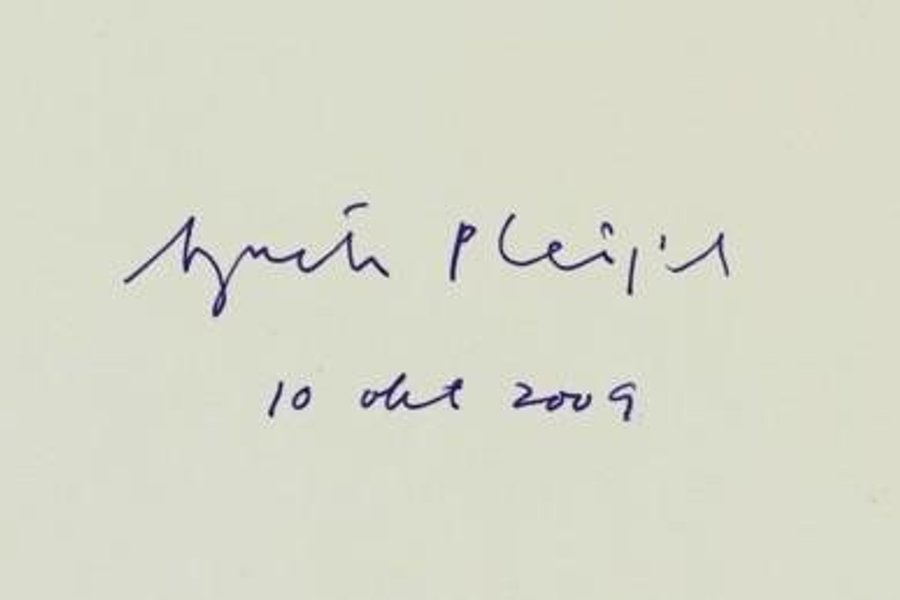 Agneta Pleijel
10 okt 2009